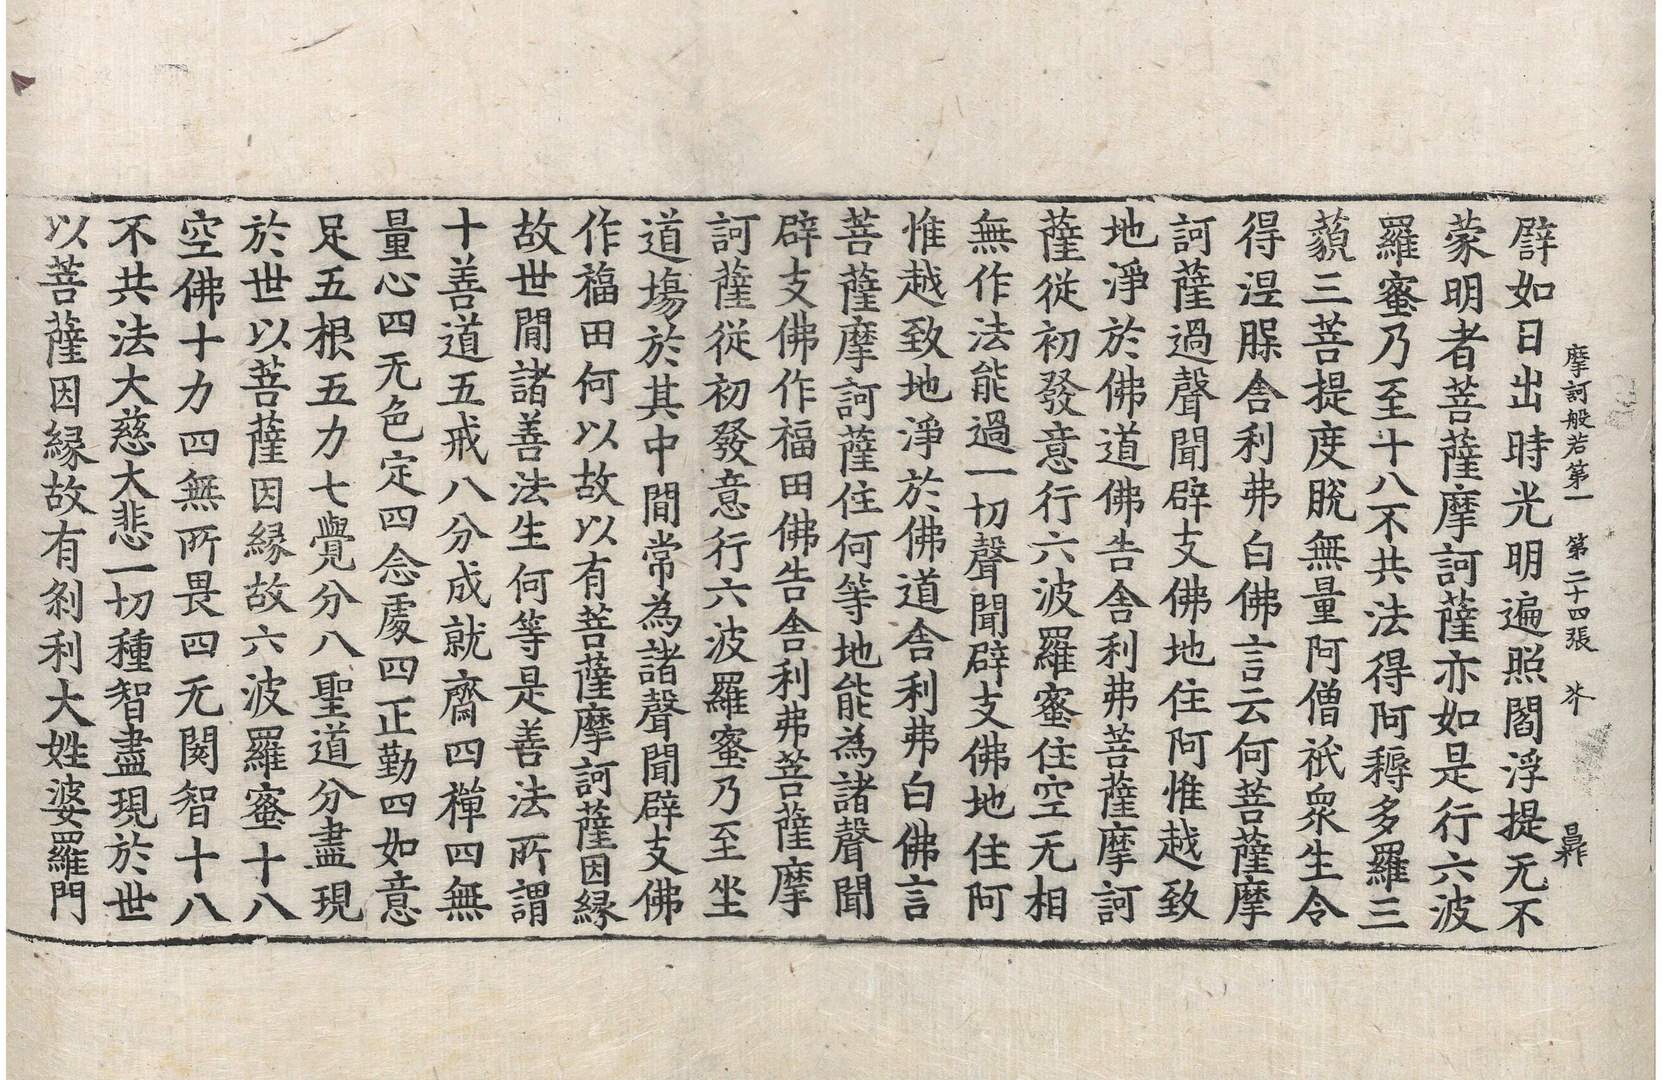 摩訶般若第一　第二十四張　芥
譬如日出時光明遍照閻浮提无不
蒙明者菩薩摩訶薩亦如是行六波
羅蜜乃至十八不共法得阿耨多羅三
藐三菩提度脫無量阿僧祇衆生令
得涅槃舍利弗白佛言云何菩薩摩
訶薩過聲聞辟支佛地住阿惟越致
地淨於佛道佛告舍利弗菩薩摩訶
薩從初發意行六波羅蜜住空无相
無作法能過一切聲聞辟支佛地住阿
惟越致地淨於佛道舍利弗白佛言
菩薩摩訶薩住何等地能為諸聲聞
辟支佛作福田佛告舍利弗菩薩摩
訶薩從初發意行六波羅蜜乃至坐
道場於其中間常為諸聲聞辟支佛
作福田何以故以有菩薩摩訶薩因緣
故世間諸善法生何等是善法所謂
十善道五戒八分成就齋四禪四無
量心四无色定四念處四正勤四如意
足五根五力七覺分八聖道分盡現
於世以菩薩因緣故六波羅蜜十八
空佛十力四無所畏四无閡智十八
不共法大慈大悲一切種智盡現於世
以菩薩因緣故有剎利大姓婆羅門